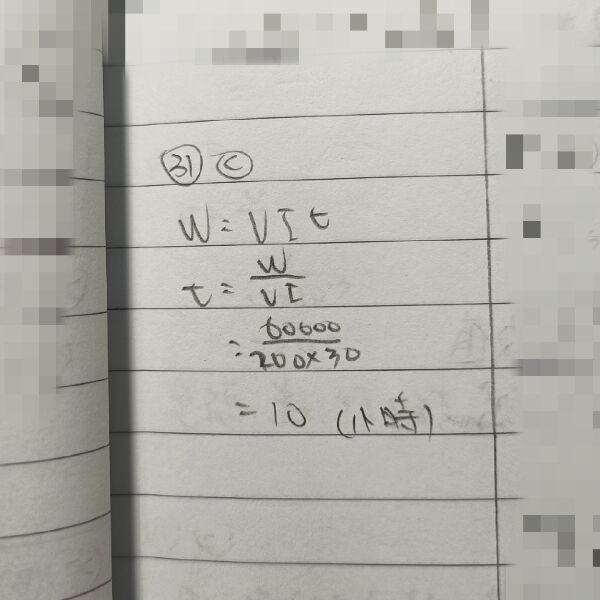 31 C
W = VIt
t = W/VI
= 60600/200×30
= 10 (小時)